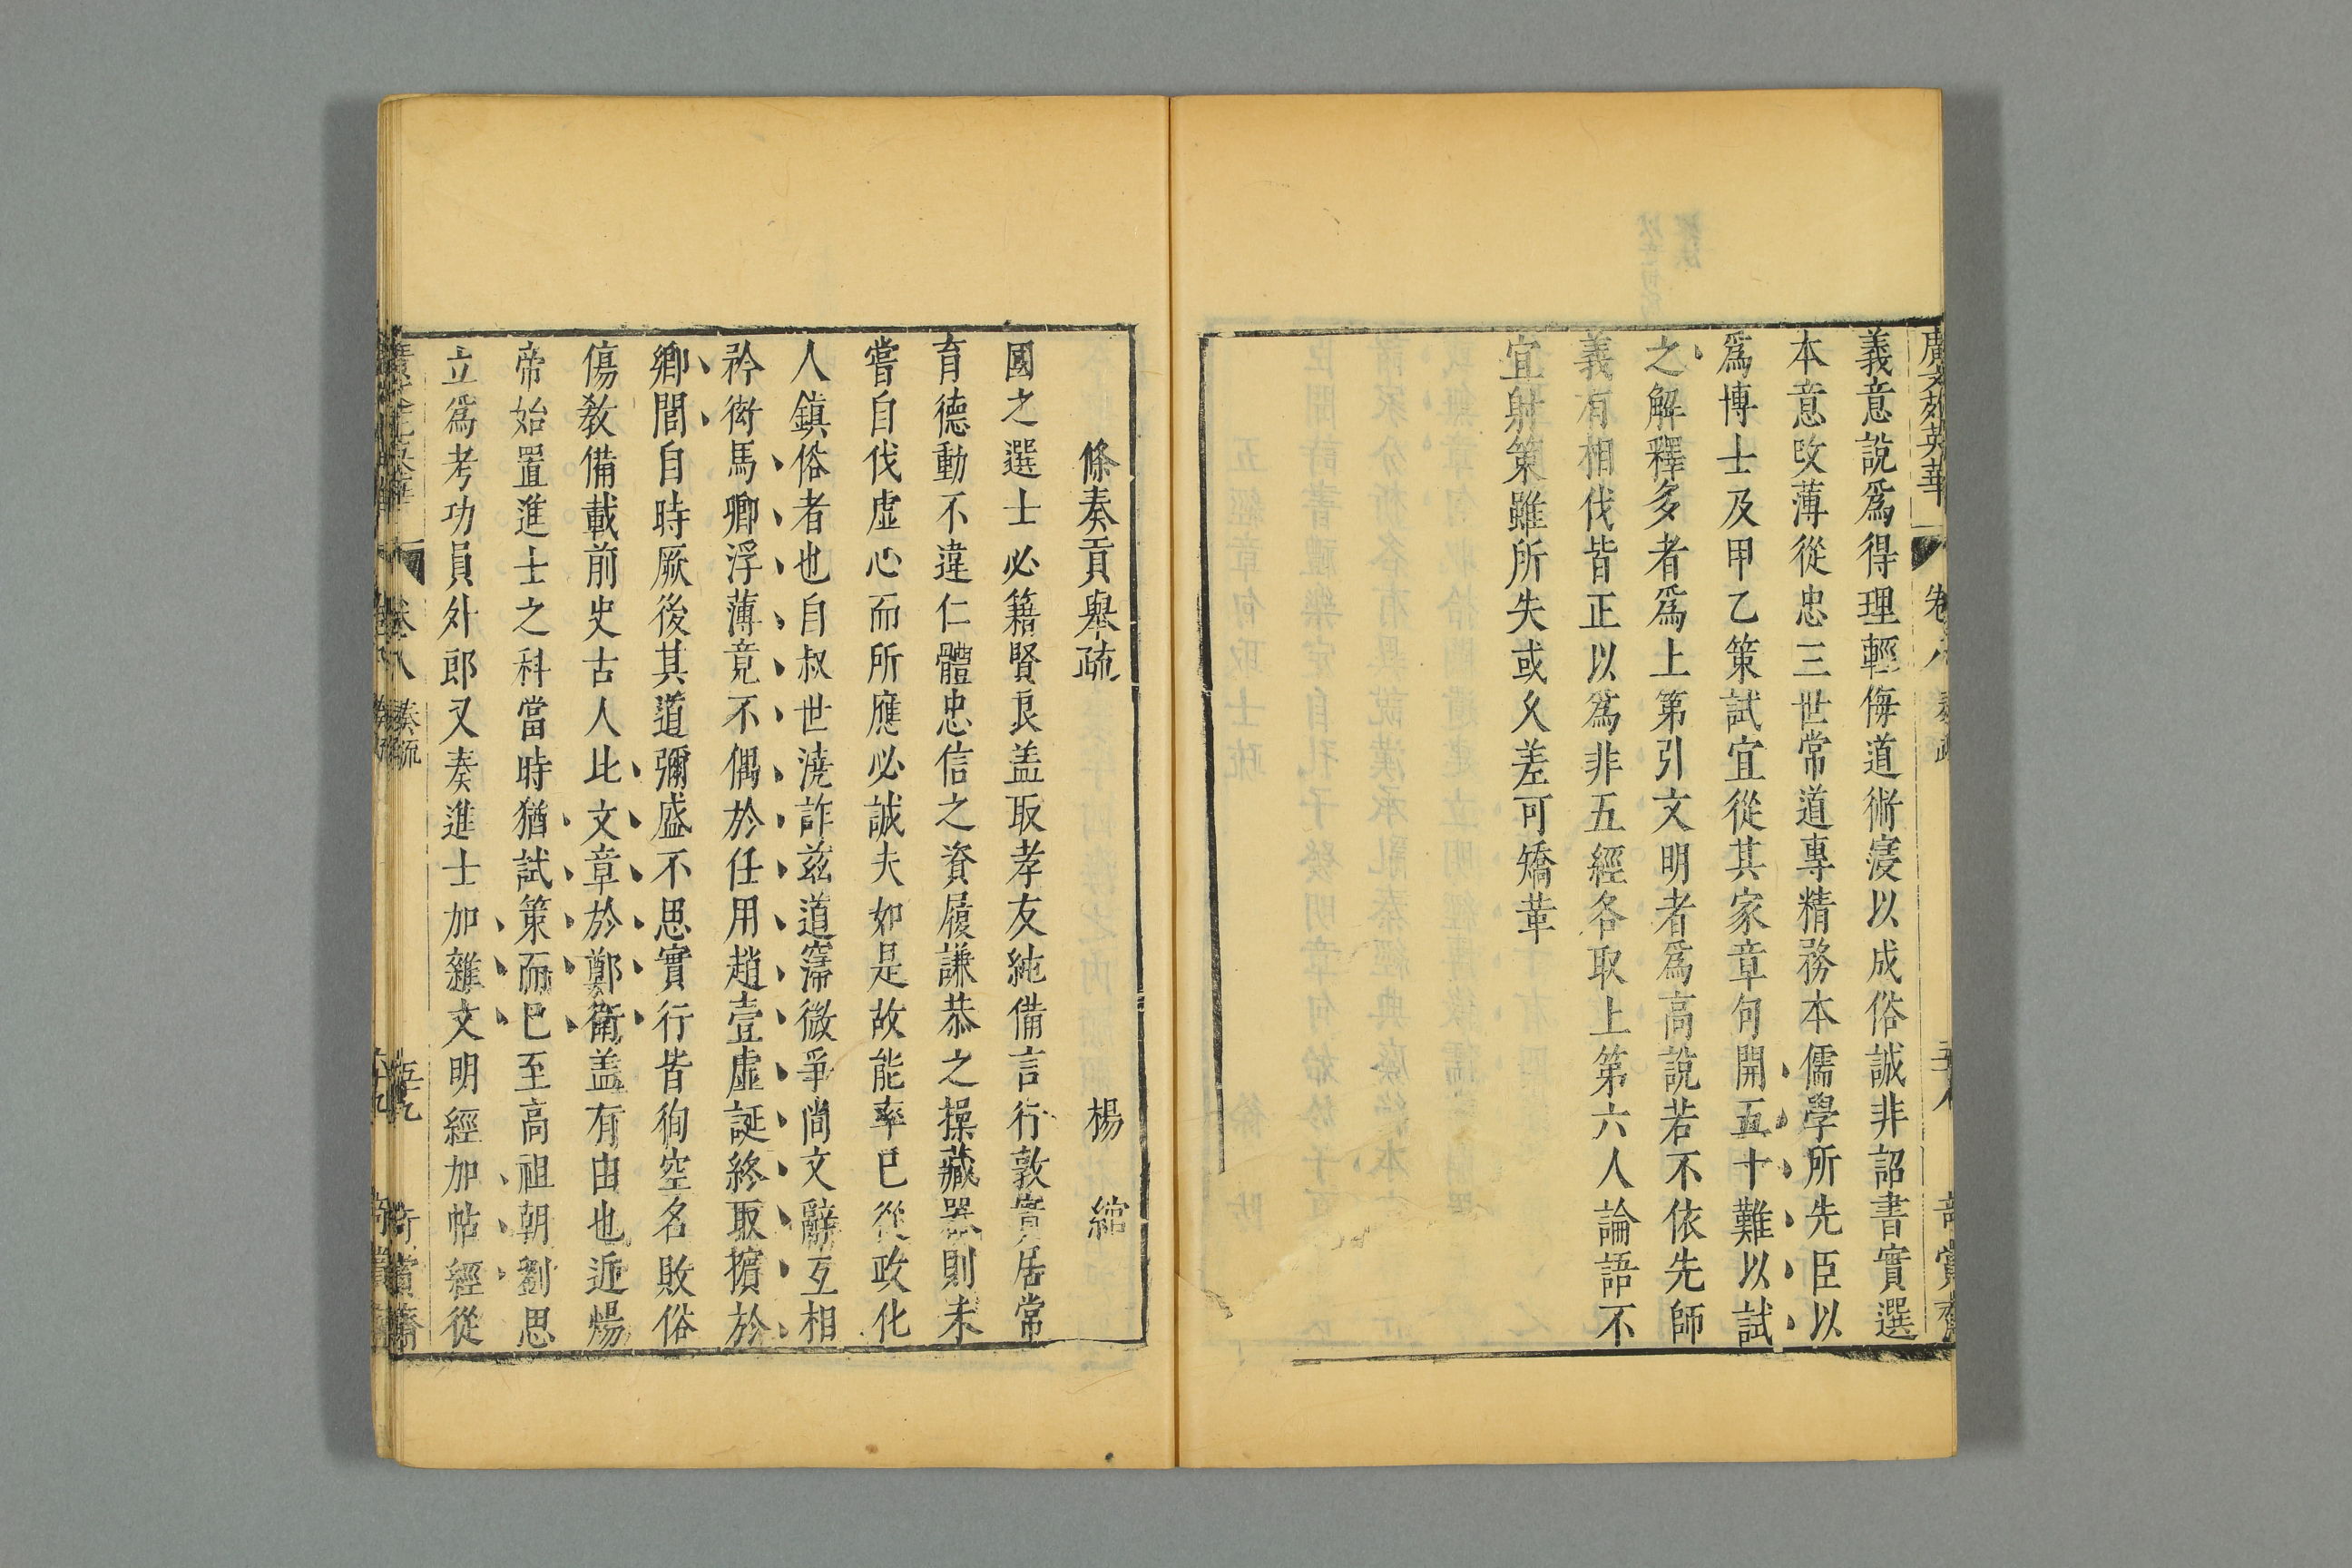 廣文苑英華 卷八 奏疏 五十八 奇賞齋
義意說爲得理輕侮道術寖以成俗誠非詔書實選
本意攺薄從忠三世常道專精務本儒學所先臣以
爲博士及甲乙策試宜從其家章句開五十難以試
之解釋多者爲上第引文明者爲高說若不依先師
義有相伐皆正以爲非五經各取上第六人論語不
宜射策雖所失或久差可矯革
條奏貢舉疏 楊綰
國之選士必籍賢良盖取孝友純備言行敦實居常
育德動不違仁體忠信之資履謙恭之操藏器則未
嘗自伐虛心而所應必誠夫如是故能率已從政化
人鎮俗者也自叔世澆詐兹道寖微爭尚文辭互相
矜衒馬卿浮薄竟不偶於任用趙壹虛誕終取擯於
鄉閭自時厥後其道彌盛不思實行皆徇空名敗俗
傷教備載前史古人比文章於鄭衛盖有由也近煬
帝始置進士之科當時猶試策而已至高祖朝劉思
立爲考功員外郎又奏進士加雜文明經加帖經從
卷八 奏疏 五十九 奇賞齋